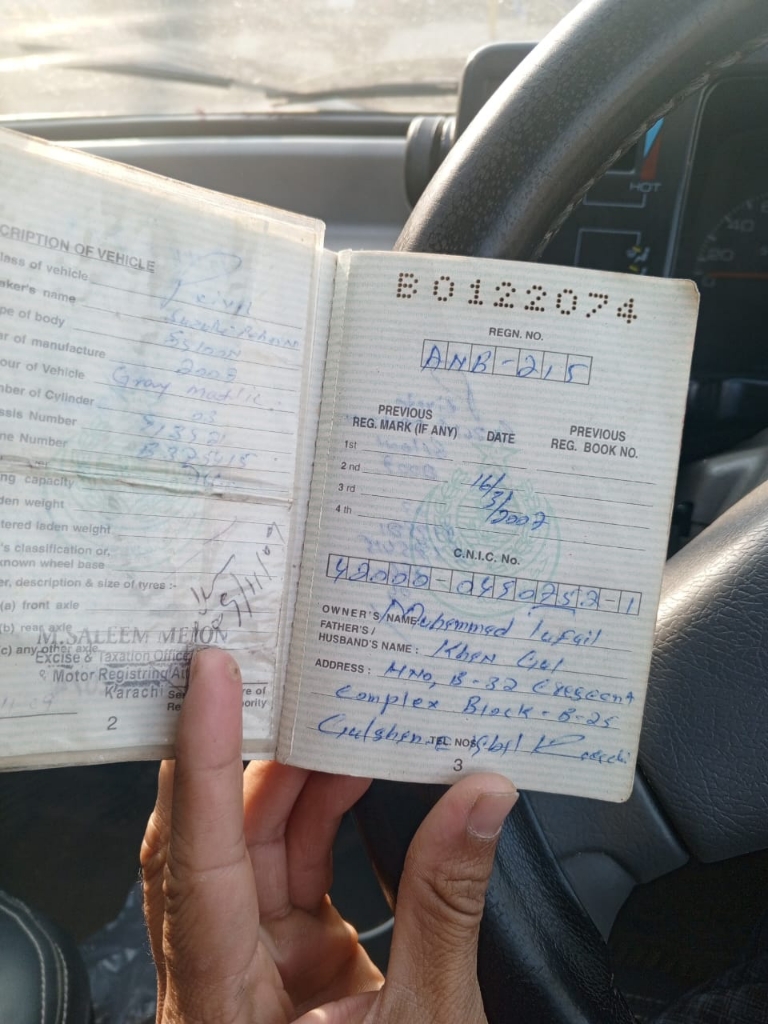 CRIPTION OF VEHICLE
lass of vehicle
aker's name Suzuki
pe of body
ar of manufacture 2007
our of Vehicle Gray
mber of Cylinder 03
assis Number
ne Number
ng capacity
den weight
tered laden weight
's classification or,
known wheel base
er, description & size of tyres :-
(a) front axle
(b) rear axle
(c) any other axle
M.SALEEM MEION
Excise & Taxation Office
& Motor Registring At
Karachi
re of
ority
2
B0122074
REGN. NO.
ANB-215
PREVIOUS REG. MARK (IF ANY) DATE PREVIOUS REG. BOOK NO.
1st
2nd
3rd
4th
16/3/2007
C.N.I.C. No.
42000-0450752-1
OWNER'S NAME Muhammad Tufail
FATHER'S /
HUSBAND'S NAME : Khan Gul
ADDRESS : HNo, B-32 Crescent
Complex Block-B-25
Gulshan-e Iqbal Karachi
TEL. NOS
3
HOT
40
20